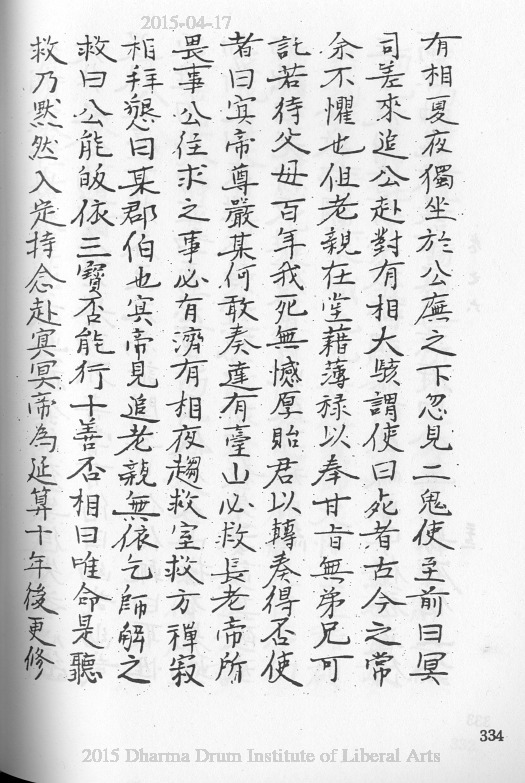 2015-04-17
有相夏夜獨坐於公廡之下忽見二鬼使至前曰冥
司差來追公赴對有相大駭謂使曰死者古今之常
余不懼也但老親在堂藉薄祿以奉甘旨無弟兄可
託若待父母百年我死無憾厚貽君以轉奏得否使
者曰冥帝尊嚴某何敢奏達有臺山必救長老帝所
畏事公往求之事必有濟有相夜趨救室救方禪寂
相拜懇曰某郡伯也冥帝見追老親無依乞師解之
救曰公能皈依三寶否能行十善否相曰唯命是聽
救乃默然入定持念赴冥冥帝為延算十年後更修
334
2015 Dharma Drum Institute of Liberal Arts